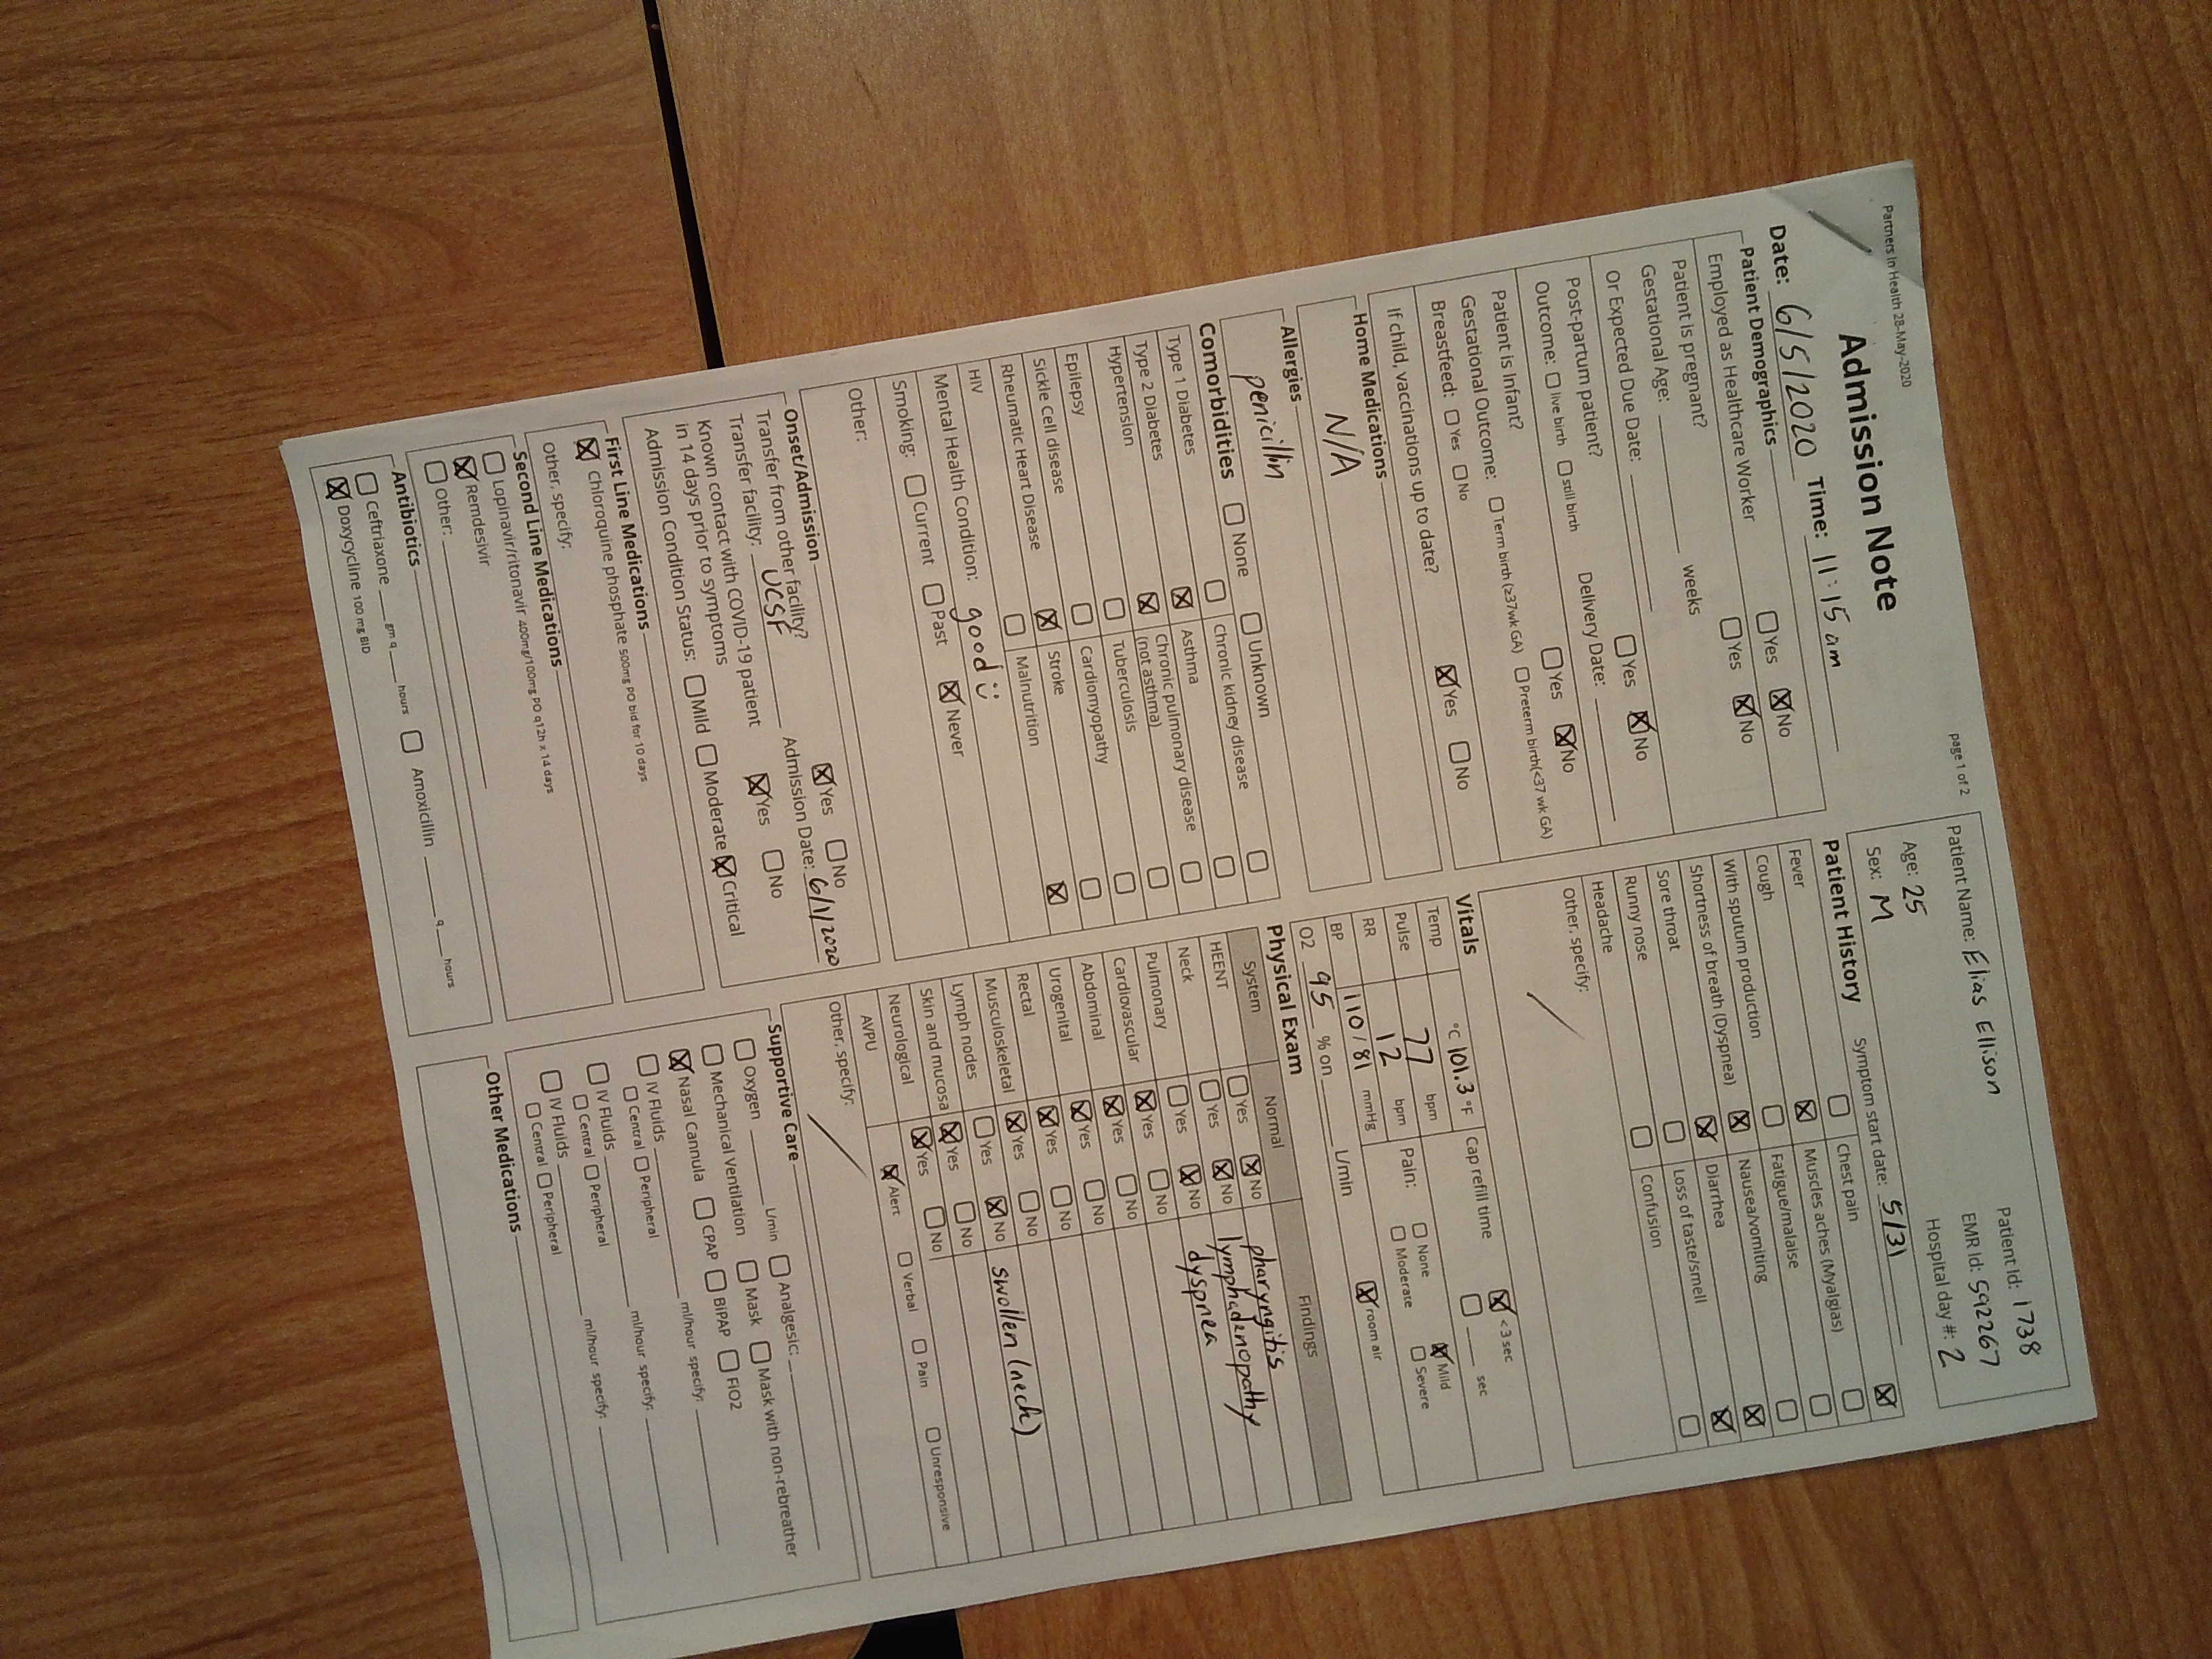 Partners In Health 28-May-2020
page 1 of 2
Admission Note
Date: 6/5/2020 Time: 11:15 am
Patient Demographics
Employed as Healthcare Worker Yes No
Patient is pregnant? Yes No
Gestational Age: weeks
Or Expected Due Date:
Post-partum patient? Yes No
Outcome: live birth still birth Delivery Date:
Patient is Infant? Yes No
Gestational Outcome: Term birth (≥37wk GA) Preterm birth(<37 wk GA)
Breastfeed: Yes No
If child, vaccinations up to date? Yes No
Home Medications
N/A
Allergies
penicillin
Comorbidities None Unknown
Type 1 Diabetes Chronic kidney disease
Type 2 Diabetes Asthma
Hypertension Chronic pulmonary disease
(not asthma)
Epilepsy Tuberculosis
Sickle Cell disease Cardiomyopathy
Rheumatic Heart Disease Stroke
HIV Malnutrition
Mental Health Condition: good
Smoking: Current Past Never
Other:
Onset/Admission
Transfer from other facility? Yes No
Transfer facility: UCSF Admission Date: 6/1/2020
Known contact with COVID-19 patient
in 14 days prior to symptoms Yes No
Admission Condition Status: Mild Moderate Critical
First Line Medications
Chloroquine phosphate 500mg PO bid for 10 days
Other, specify:
Second Line Medications
Lopinavir/ritonavir 400mg/100mg PO q12h x 14 days
Remdesivir
Other:
Antibiotics
Ceftriaxone gm q hours Amoxicillin q hours
Doxycycline 100 mg BID
Patient Name: Elias Ellison Patient Id: 1738
EMR Id: 592267
Age: 25
Sex: M Hospital day #: 2
Patient History Symptom start date: 5/31
Fever Chest pain
Cough Muscles aches (Myalgias)
With sputum production Fatigue/malaise
Shortness of breath (Dyspnea) Nausea/vomiting
Sore throat Diarrhea
Runny nose Loss of taste/smell
Headache Confusion
Other, specify:
Vitals
Temp °C 101.3 °F Cap refill time <3 sec
sec
Pulse 77 bpm Pain: None Mild
RR 12 bpm Moderate Severe
BP 110/81 mmHg
O2 95 % on L/min room air
Physical Exam
System Normal Findings
HEENT Yes No pharyngitis
Neck Yes No lymphadenopathy
Pulmonary Yes No dyspnea
Cardiovascular Yes No
Abdominal Yes No
Urogenital Yes No
Rectal Yes No
Musculoskeletal Yes No
Lymph nodes Yes No swollen (neck)
Skin and mucosa Yes No
Neurological Yes No
AVPU Alert Verbal Pain Unresponsive
Other, specify:
Supportive Care
Oxygen L/min Analgesic:
Mechanical Ventilation Mask Mask with non-rebreather
Nasal Cannula CPAP BiPAP FiO2
IV Fluids ml/hour specify:
Central Peripheral
IV Fluids ml/hour specify:
Central Peripheral
IV Fluids ml/hour specify:
Central Peripheral
Other Medications